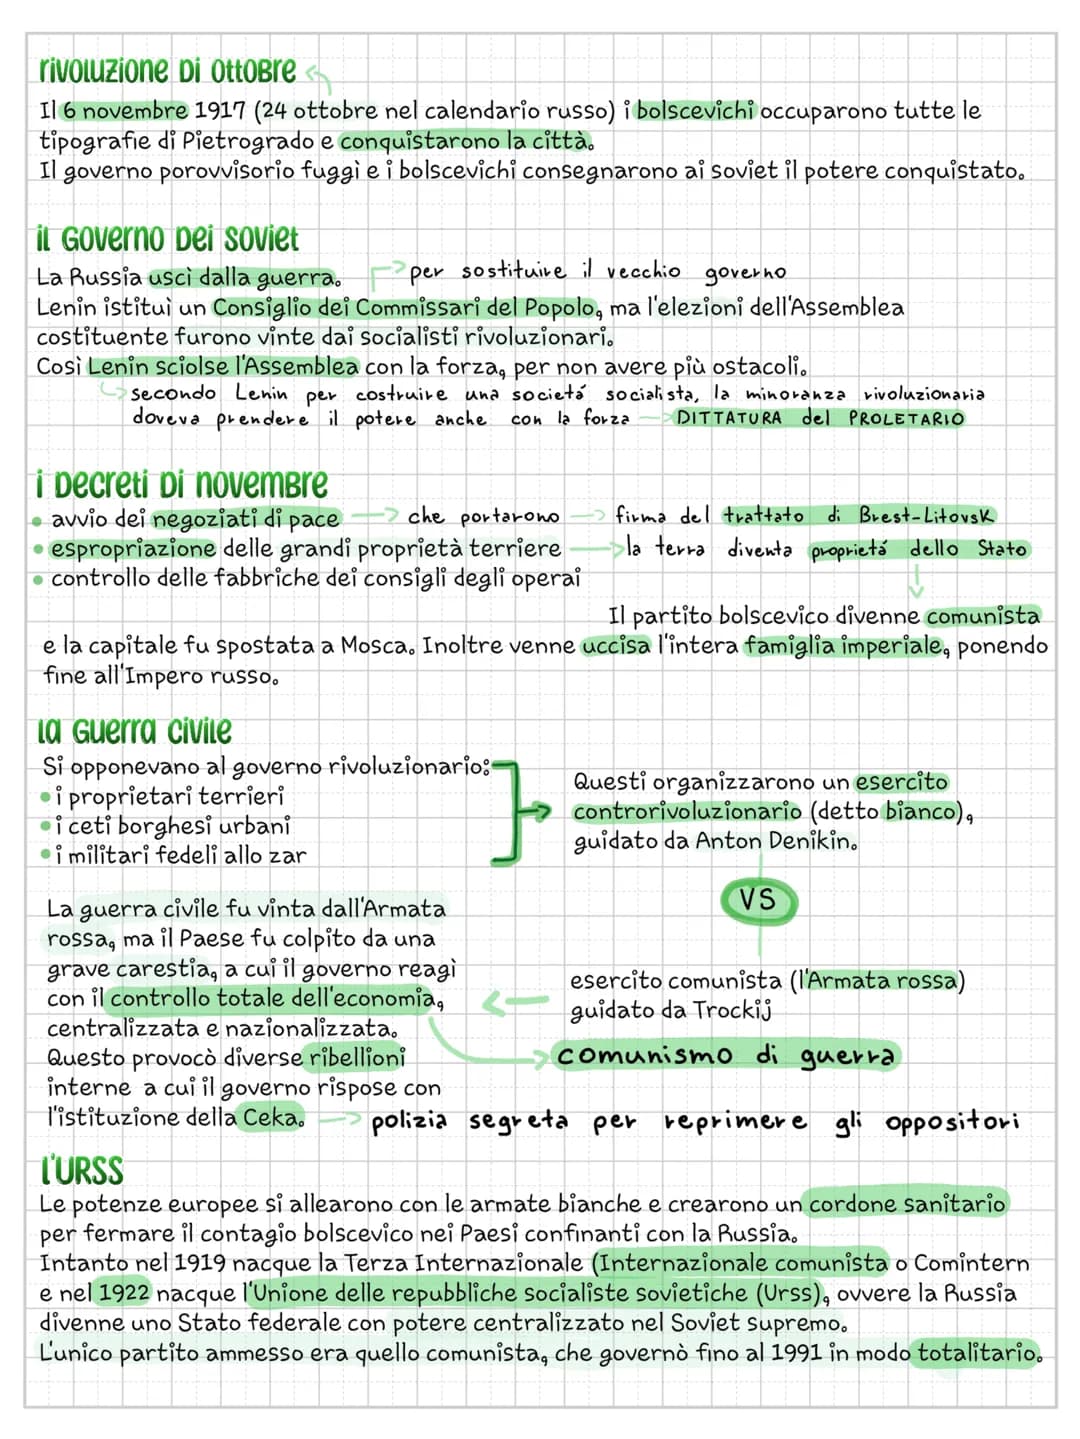 rivoluzione di ottobre
Il 6 novembre 1917 (24 ottobre nel calendario russo) i bolscevichi occuparono tutte le
tipografie di Pietrogrado e conquistarono la città.
Il governo porovvisorio fuggì e i bolscevichi consegnarono ai soviet il potere conquistato.
il governo dei soviet
La Russia uscì dalla guerra.
per sostituire il vecchio governo
Lenin istituì un Consiglio dei Commissari del Popolo, ma l'elezioni dell'Assemblea
costituente furono vinte dai socialisti rivoluzionari.
Così Lenin sciolse l'Assemblea con la forza, per non avere più ostacoli.
secondo Lenin per costruire una societá socialista, la minoranza rivoluzionaria
doveva prendere il potere anche con la forza → DITTATURA del PROLETARIO
i decreti di novembre
• avvio dei negoziati di pace → che portarono → firma del trattato di Brest-Litovsk
• espropriazione delle grandi proprietà terriere → la terra diventa proprietá dello Stato
• controllo delle fabbriche dei consigli degli operai
Il partito bolscevico divenne comunista
e la capitale fu spostata a Mosca. Inoltre venne uccisa l'intera famiglia imperiale, ponendo
fine all'Impero russo.
la guerra civile
Si opponevano al governo rivoluzionario:
• i proprietari terrieri
• i ceti borghesi urbani
• i militari fedeli allo zar
Questi organizzarono un esercito
controrivoluzionario (detto bianco),
guidato da Anton Denikin.
VS
esercito comunista (l'Armata rossa)
guidato da Trockij
La guerra civile fu vinta dall'Armata
rossa, ma il Paese fu colpito da una
grave carestia, a cui il governo reagì
con il controllo totale dell'economia,
centralizzata e nazionalizzata.
comunismo di guerra
Questo provocò diverse ribellioni
interne a cui il governo rispose con
l'istituzione della Ceka. → polizia segreta per reprimere gli oppositori
l'URSS
Le potenze europee si allearono con le armate bianche e crearono un cordone sanitario
per fermare il contagio bolscevico nei Paesi confinanti con la Russia.
Intanto nel 1919 nacque la Terza Internazionale (Internazionale comunista o Comintern
e nel 1922 nacque l'Unione delle repubbliche socialiste sovietiche (Urss), ovvere la Russia
divenne uno Stato federale con potere centralizzato nel Soviet supremo.
L'unico partito ammesso era quello comunista, che governò fino al 1991 in modo totalitario.